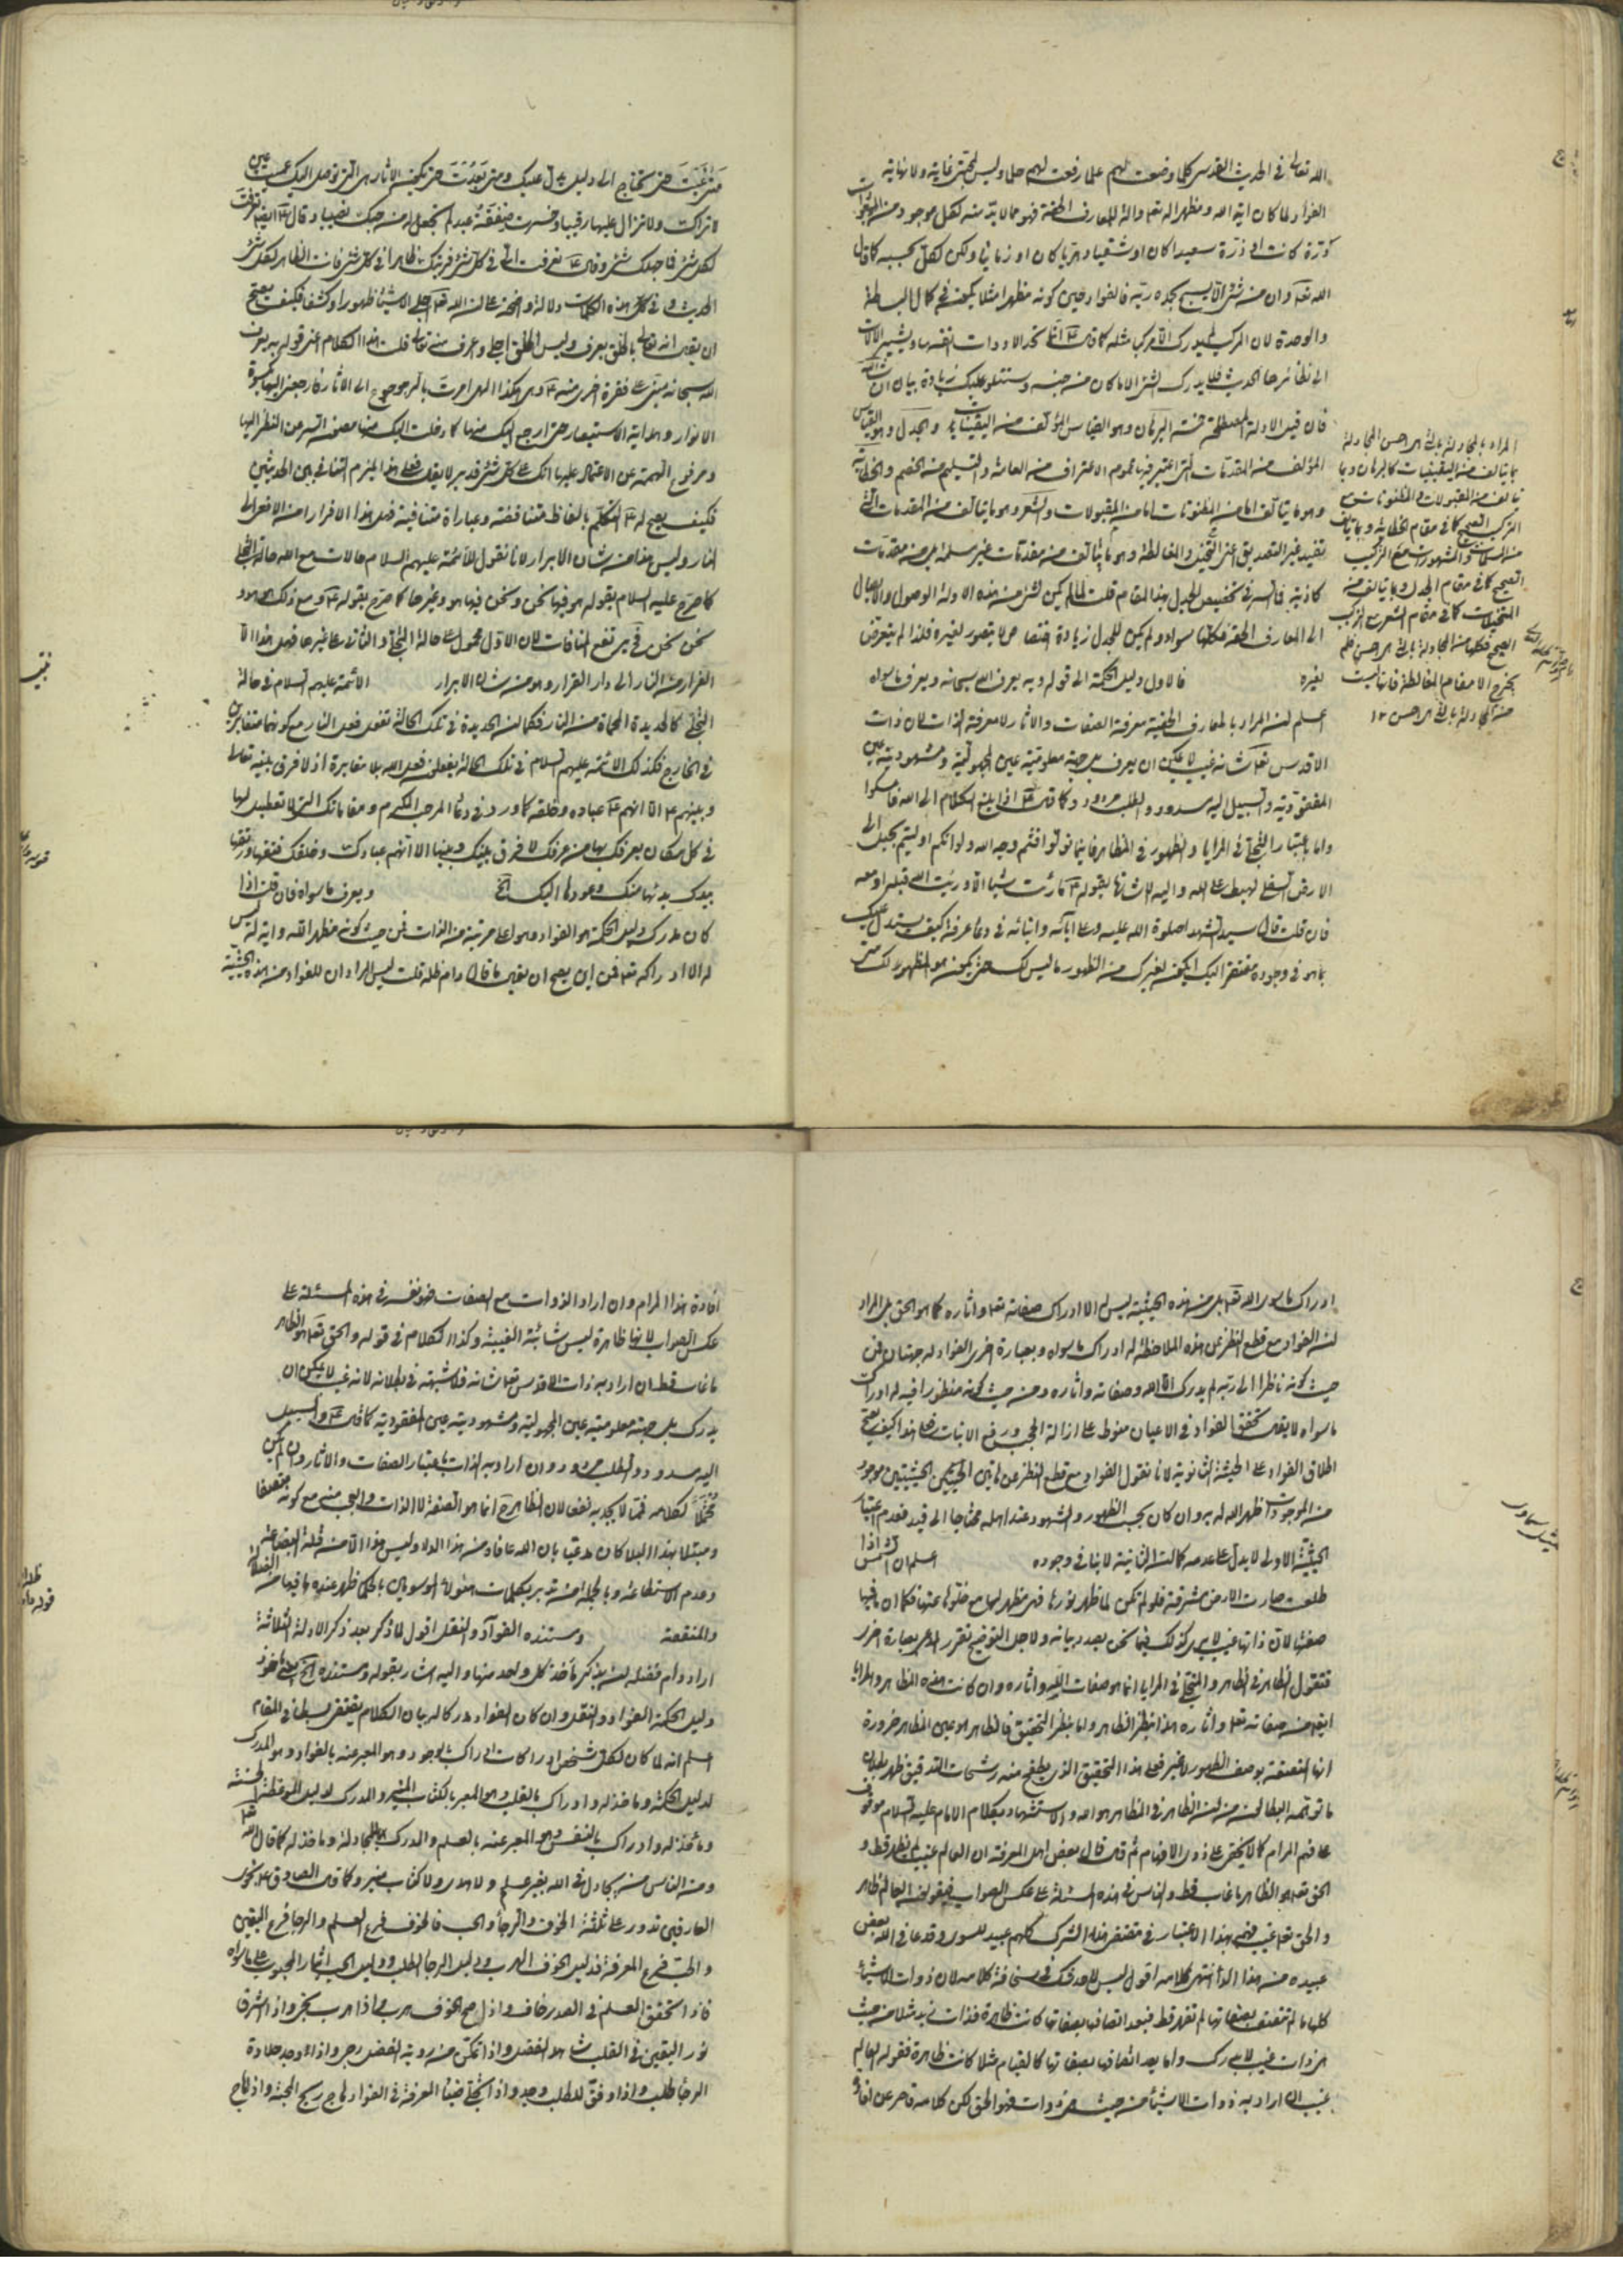 الله تعالى في الحديث القدسي كلما وضعت لهم علما رفعت لهم حلما وليس لمحبتي غاية ولا نهاية
الفؤاد لما كان اية الله ومظهرا له تعالى والة للمعارف الحقة فهو مما لا بد منه لكل موجود من الموجودات
ذرة كانت او درة سعيدا كان او شقيا دهريا كان او زمانيا ولكن لكل بحسبه كما قال
الله تعالى وان من شيء الا يسبح بحمده ربه فالفؤاد حين كونه مظهرا مثلا يكون في كمال البساطة
والوحدة لان المركب لا يدرك الا مركبا مثله كما قال ع انما تحد الادوات انفسها وتشير الالات
الى نظائرها الحديث فلا يدرك الشيء الا ما كان من جنسه وستتلو عليك زيادة بيان ان شاء الله
فان قيل الادلة المصطلحة خمسة البرهان وهو القياس المؤلف من اليقينيات والجدل وهو القياس
المؤلف من المقدمات التي اعتبر فيها عموم الاعتراف من العامة او التسليم من الخصم والخطابة
وهو ما يتالف اما من المظنونات اما من المقبولات والشعر وهو ما يتالف من المقدمات التي
تفيد غير التصديق اعني التخييل والمغالطة وهو ما يتالف من مقدمات غير مسلمة بل من مقدمات
كاذبة فما السر في تخصيص الجدل بهذا المقام قلت لما لم يكن لشيء من هذه الادلة الوصول والايصال
الى المعارف الحقة فكلها سواء ولم يكن للجدل زيادة اختصاص لا يتصور لغيره فلذا لم يتعرض
لغيره فالاول دليل الحكمة الى قوله وبه يعرف الله سبحانه ويعرف ما سواه
اعلم ان المراد بالمعارف الحقية معرفة الصفات والاثار لا معرفة الذات لان ذات
الاقدس تعالى شانه غيب لا يمكن ان يعرف بل جهة معلوميته عين المجهولية ومشهوديته عين
المفقودية والسبيل اليه مسدود والطلب مردود كما قال ع اذا بلغ الكلام الى الله فامسكوا
واما باعتبار التجلي في المرايا والظهور في المظاهر فاينما تولوا فثم وجه الله ولو انكم ادليتم بحبل الى
الارض السفلى لهبط على الله واليه الاشارة بقوله ع ما رايت شيئا الا ورايت الله قبله او معه
فان قلت قال سيد الشهداء صلوة الله عليه وعلى ابائه وابنائه في دعاء عرفة كيف يستدل عليك
بما هو في وجوده مفتقر اليك ايكون لغيرك من الظهور ما ليس لك حتى يكون هو المظهر لك متى
المراد بالمجادلة بالتي هي احسن المجادلة
بما يتالف من اليقينيات كالبرهان وبما
يتالف من المقبولات والمظنونات مع
التركيب الصحيح كما في مقام الخطابة وبما يتالف
من المسلمات والمشهورات مع التركيب
الصحيح كما في مقام الجدل وبما يتالف من
المتخيلات كما في مقام الشعر مع التركيب
الصحيح فكلها من المجادلة بالتي هي احسن فلم
يخرج الا مقام المغالطة فانها ليست
من المجادلة بالتي هي احسن ١٢
متى غبت حتى تحتاج الى دليل يدل عليك ومتى بعدت حتى تكون الاثار هي التي توصل اليك عميت عين
لا تراك ولا تزال عليها رقيبا وخسرت صفقة عبد لم تجعل له من حبك نصيبا وقال ع ايضا تعرفت
لكل شيء فما جهلك شيء وقال ع تعرفت الي في كل شيء فرايتك ظاهرا في كل شيء فانت الظاهر لكل شيء
الحديث وفي كل هذه الكلمات دلالة واضحة على ان الله تعالى اجلى الاشياء ظهورا وكشفا فكيف يصح
ان يقال انه تعالى بالخلق يعرف وليس الخلق اجلى واعرف منه تعالى قلت هذا الكلام اعني قوله به يعرف
الله سبحانه مبتني على فقرة اخرى منه ع وهي هكذا الهي امرت بالرجوع الى الاثار فارجعني اليها بكسوة
الانوار وهداية الاستبصار حتى ارجع اليك منها كما دخلت اليك منها مصون السر عن النظر اليها
ومرفوع الهمة عن الاعتماد عليها انك على كل شيء قدير لا يقال فعلى هذا يلزم التنافي بين الحديثين
فكيف يصح له ع التكلم بالفاظ متناقضة وعباراة متنافية فهل هذا الا فرارا من الافعى الى
النار وليس هذا من شان الابرار لانا نقول للائمة عليهم السلام حالات مع الله حالة التجلي
كما صرح عليه السلام بقوله هو فيها نحن ونحن فيها هو وغيرها كما صرح بقوله ع ومع ذلك هو هو
نحن نحن فح يرتفع المنافات لان الاول محمول على حالة التجلي والثاني على غيرها فهل هذا الا
الفرار من النار الى دار القرار وهو من شان الابرار الائمة عليهم السلام في حالة
التجلي كالحديدة المحماة من النار فكما ان الحديدة في تلك الحالة تفعل فعل النار مع كونهما متغايرين
في الخارج فكذلك الائمة عليهم السلام في تلك الحالة يفعلون فعل الله بلا مغايرة اذ لا فرق بينه تعالى
وبينهم ع الا انهم ع عباده وخلقه كما ورد في دعاء المرجب المكرم ومقاماتك التي لا تعطيل لها
في كل مكان يعرفك بها من عرفك لا فرق بينك وبينها الا انهم عبادك وخلقك فتقها ورتقها
بيدك بدئها منك وعودها اليك الخ ويعرف ما سواه فان قلت اذا
كان مدرك دليل الحكمة هو الفؤاد وهو اعلى مرتبة من الذات فمن حيث كونه مظهرا لله واية له ليس
له الا ادراكه تعالى فمن اين يصح ان يقول ما قال دام ظله قلت ليس المراد ان للفؤاد من هذه الحيثية
ادراك ما سوى الله تعالى بل من هذه الحيثية ليس له الا ادراك صفاته تعالى واثاره كما هو الحق بل المراد
ان الفؤاد مع قطع النظر عن هذه الملاحظة له ادراك ما سواه وبعبارة اخرى الفؤاد له جهتان فمن
حيث كونه ناظرا الى ربه لم يدرك الا الله وصفاته واثاره ومن حيث كونه منظورا فيه له ادراك
ما سواه لا يقال تحقق الفؤاد في الاعيان منوط على ازالة الحجب ورفع الانيات فعلى هذا كيف يصح
اطلاق الفؤاد على الحيثية الثانوية لانا نقول الفؤاد مع قطع النظر عن هاتين الحيثيتين موجود
من الموجودات اظهر الله له به وان كان بحسب الظهور والشهود عند اهله محتاجا الى قيد فعدم اعتبار
الحيثية الاولى لا يدل على عدمه كما ان الثانية لا ينافي وجوده اعلم ان الشمس اذا
طلعت صارت الارض مشرقة فلو لم تكن لما ظهر نورها فهي مظهر لها مع خلوها عنها فكما ان ما فيها
صفتها لان ذاتها غيب لا يدرك كذلك فيما نحن بصدد بيانه ولاجل التوضيح نقرر المدعى بعبارة اخرى
فنقول الظاهر في المظاهر والمتجلي في المرايا انما هو صفات الله واثاره وان كانت هذه المظاهر والمرايا
ايضا من صفاته تعالى واثاره هذا بنظر الظاهر واما بنظر التحقيق فالظاهر هو عين المظاهر ضرورة
انها المتصفة بوصف الظهور لا غير فعلى هذا التحقيق الذي يطفح منه رشحات التدقيق ظهر بطلان
ما توهمه البطالون من ان الظاهر في المظاهر هو الله والاستشهاد بكلام الامام عليه السلام موقوف
على فهم المرام كما لا يخفى على ذوي الافهام ثم قال قال بعض اهل المعرفة ان العالم غيب لم يظهر قط و
الحق تعالى هو الظاهر ما غاب قط والناس في هذه المسئلة على عكس الصواب فيقولون العالم ظاهر
والحق تعالى غيب فهم بهذا الاعتبار في مقتضى هذا الشرك كلهم عبيد للسوى وقد عافى الله بعض
عبيده من هذا الداء انتهى كلامه اقول ليس لاحد شك في سخافة كلامه لان ذوات الاشياء
كلها ما لم تتصف بصفاتها لم تظهر قط فبعد اتصافها بصفاتها كانت ظاهرة فذات زيد مثلا من حيث
هي ذات غيب لا يدرك واما بعد اتصافها بصفاتها كالقيام مثلا كانت ظاهرة فقوله العالم
غيب ان اراد به ذوات الاشياء من حيث هي ذوات فهو الحق لكن كلامه قاصر عن افادة
افادة هذا المرام وان اراد الذوات مع الصفات فهو نفسه في هذه المسئلة على
عكس الصواب لانها ظاهرة ليس شائبة الغيبية وكذا الكلام في قوله والحق تعالى هو الظاهر
ما غاب قط ان اراد به ذات الاقدس تعالى شانه فلا شبهة في بطلانه لانه غيب لا يمكن ان
يدرك بل جهة معلوميته عين المجهولية ومشهوديته عين المفقودية كما قال ع والسبيل
اليه مسدود والطلب مردود وان اراد به الذات باعتبار الصفات والاثار وان لم يكن
محتملا لكلامه فمما لا يجديه نفعا لان الظاهر ح انما هو الصفة لا الذات والعجب منه مع كونه متصفا
ومبتلا بهذا البلاء كان مدعيا بان الله عافاه من هذا الداء وليس هذا الا من قلة البضاعة
وعدم الاستطاعة وبالجملة من تدبر بكلمات هؤلاء الموسومين بالحكماء ظهر عنده ما فيها من الغلط
والمنقصة ومستنده الفؤاد والنقل اقول لما ذكر بعد ذكر الادلة الثلاثة
اراد دام فضله ان يذكر ماخذ كل واحد منها واليه اشار بقوله ومستنده الخ يعني ماخذ
دليل الحكمة الفؤاد والنقل وان كان الفؤاد مدركا له بيان الكلام يقتضي بسطا في المقام
اعلم انه لما كان لكل شخص ادراكات ادراك بالوجود وهو المعبر عنه بالفؤاد وهو المدرك
لدليل الحكمة وماخذ له وادراك بالقلب وهو المعبر بالكتاب المنير والمدرك لدليل الموعظة الحسنة
وماخذ له وادراك بالنفس وهو المعبر عنه بالعلم والمدرك للمجادلة وماخذ له كما قال الله تعالى
ومن الناس من يجادل في الله بغير علم ولا هدى ولا كتاب منير وكما قال الصادق ع نجوى
العارفين تدور على ثلثة الخوف والرجاء والحب فالخوف فرع العلم والرجا فرع اليقين
والحب فرع المعرفة فدليل الخوف الهرب ودليل الرجا الطلب ودليل الحب ايثار المحبوب على ما سواه
فاذا تحقق العلم في الصدر خاف واذا صح الخوف هرب واذا هرب نجى واذا اشرق
نور اليقين في القلب شاهد الفضل واذا تمكن من رؤية الفضل رجى واذا وجد حلاوة
الرجا طلب واذا وفق للطلب وجد واذا تجلى ضياء المعرفة في الفؤاد هاج ريح المحبة واذا هاج